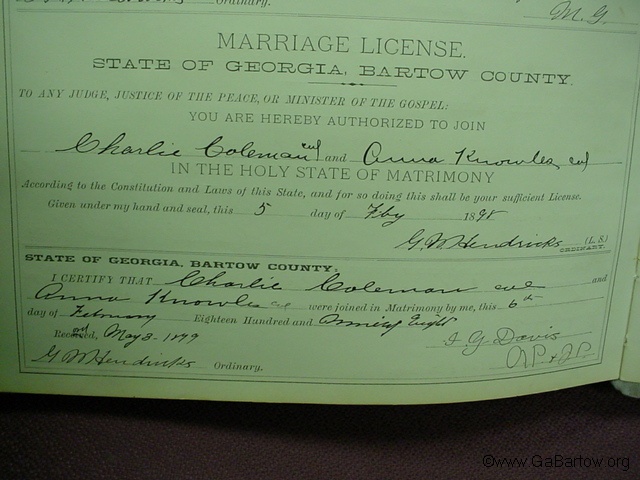 Ordinary.
M. G.
MARRIAGE LICENSE.
STATE OF GEORGIA, BARTOW COUNTY.
TO ANY JUDGE, JUSTICE OF THE PEACE, OR MINISTER OF THE GOSPEL:
YOU ARE HEREBY AUTHORIZED TO JOIN
Charlie Coleman col and Anna Knowles col
IN THE HOLY STATE OF MATRIMONY
According to the Constitution and Laws of this State, and for so doing this shall be your sufficient License.
Given under my hand and seal, this 5 day of Feby 1898
G. W. Hendricks (L. S.)
ORDINARY.
STATE OF GEORGIA, BARTOW COUNTY,
I CERTIFY THAT Charlie Coleman col and
Anna Knowles col were joined in Matrimony by me, this 6th
day of February Eighteen Hundred and Ninety Eight
May 3 - 1899
J. G. Davis
N.P. & J.P.
G. W. Hendricks Ordinary.
©www.GaBartow.org